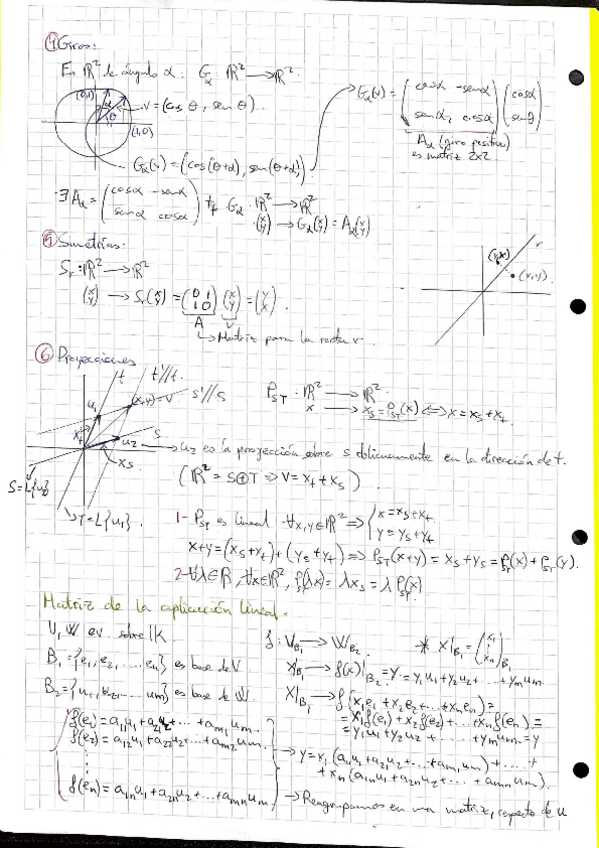 ④ Giros:
En ℝ² de ángulo α: G_α: ℝ² → ℝ².
(0,1)
α
θ
v = (cos θ, sen θ).
(1,0)
G_α(v) = (cos(θ+α), sen(θ+α))
G_α(v) = (cosα -senα / senα, cosα)(cosα / senθ)
A_α (giro positivo)
es matriz 2x2.
· ∃ A_α = (cosα -senα / senα cosα) t.q. G_α: ℝ² → ℝ²
(x / y) → G_α(x / y) = A_α(x / y)
⑤ Simetrías:
S_r: ℝ² → ℝ²
(x / y) → S_r(x / y) = (0 1 / 1 0)(x / y) = (y / x).
A
v
→ Matriz para la recta r.
r
(y,x)
(x,y).
⑥ Proyecciones
t
t'//t.
s'//s
(x,y)=v
u₁
x_t
s
u₂
x_s
S=L{u₂}
T=L{u₁}.
P_ST: ℝ² → ℝ².
x → x_s = P_ST(x) ⟺ x = x_s + x_t.
→ u₂ es la proyección sobre s oblicuamente en la dirección de t.
(ℝ² = S⊕T ⟹ v = x_t + x_s).
1- P_ST es lineal ∀x,y∈ℝ² ⟹ { x = x_s + x_t / y = y_s + y_t
x+y = (x_s+x_t) + (y_s+y_t) ⟹ P_ST(x+y) = x_s + y_s = P_ST(x) + P_ST(y).
2- ∀λ∈ℝ, ∀x∈ℝ², P_ST(λx) = λx_s = λ P_ST(x)
Matriz de la aplicación lineal.
V, W e.v. sobre 𝕂.
B₁ = {e₁, e₂, ..., en} es base de V
B₂ = {u₁, u₂, ... um} es base de W.
f: V_B₁ → W_B₂
* X|_B₁ = (x₁ / ⋮ / xn)_B₁
X|_B₁ → f(x)|_B₂ = y = y₁u₁ + y₂u₂ + ... + ymum.
X|_B₁ → f(x₁e₁ + x₂e₂ + ... + xnen) =
= x₁f(e₁) + x₂f(e₂) + ... + xnf(en) =
= y₁u₁ + y₂u₂ + ... + ymum = y
f(e₁) = a₁₁u₁ + a₂₁u₂ + ... + am₁um.
f(e₂) = a₁₂u₁ + a₂₂u₂ + ... + am₂um.
⋮
f(en) = a₁nu₁ + a₂nu₂ + ... + amnum
→ y = x₁(a₁₁u₁ + a₂₁u₂ + ... + am₁um) + ... +
+ xn(a₁nu₁ + a₂nu₂ + ... + amnum).
→ Reagrupamos en una matriz, respecto de u